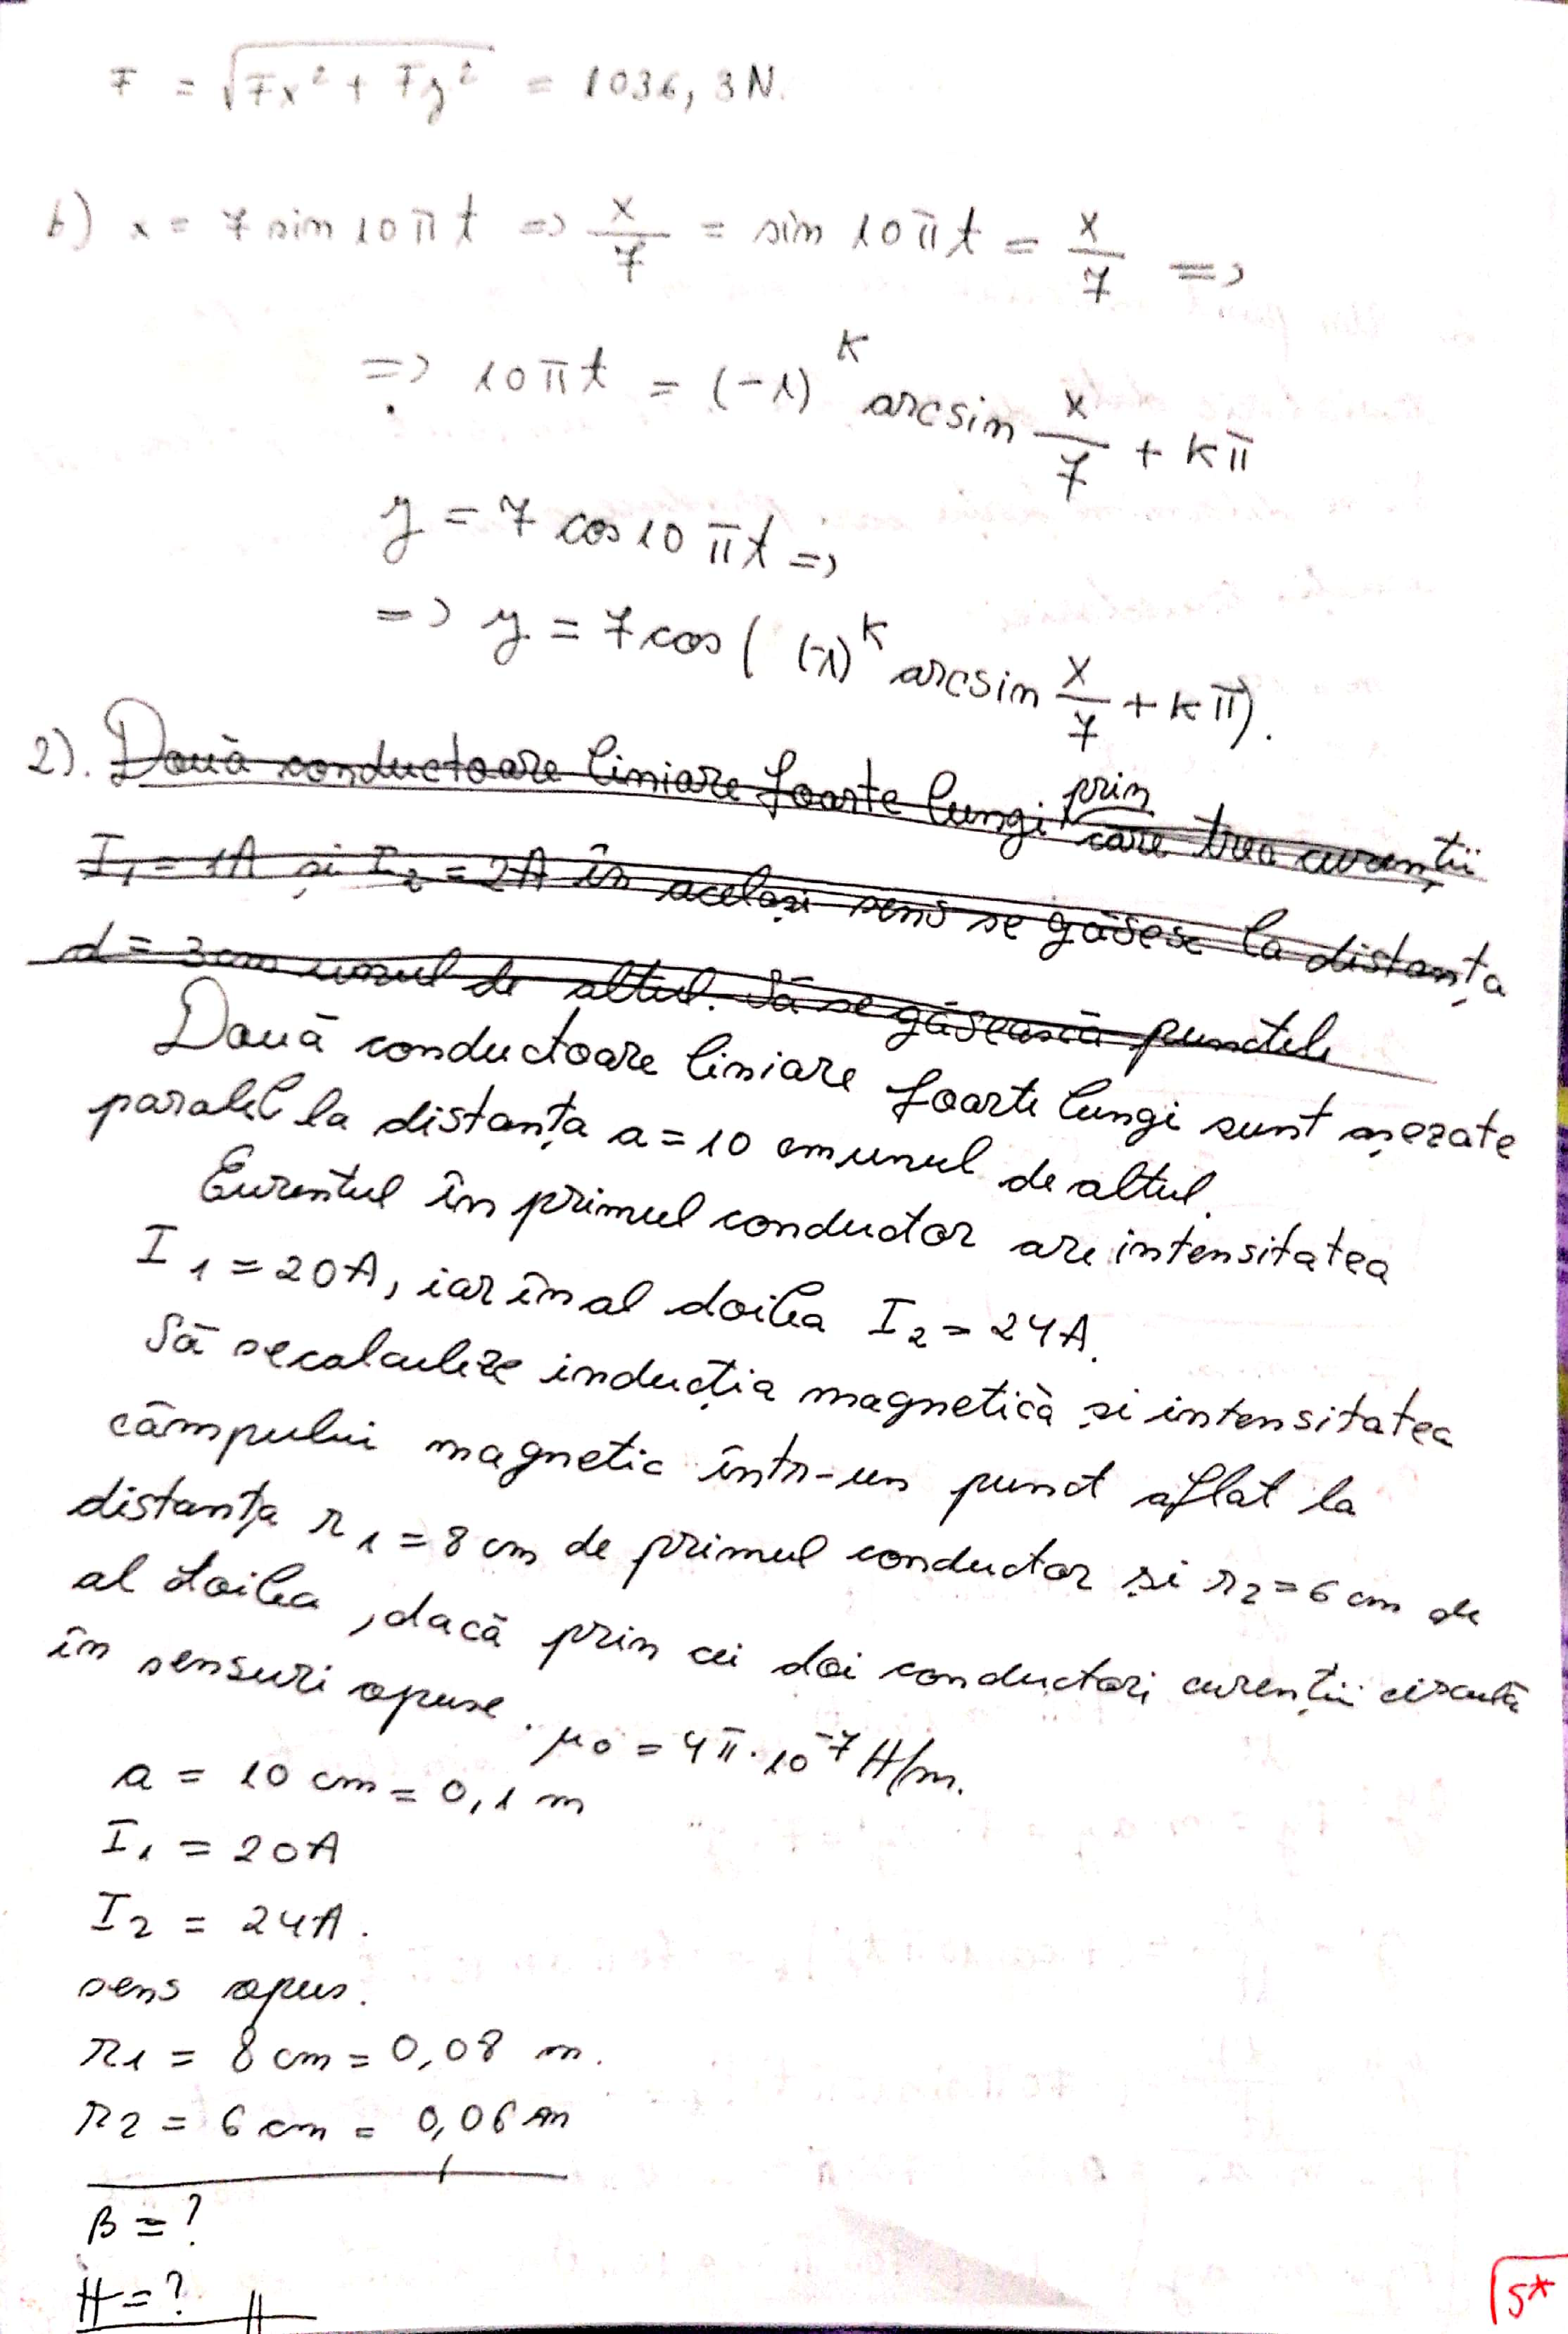 F = √(Fx² + Fy²) = 1036,3N.
b) x = 7 sin 10πt => x/7 = sin 10πt = x/7 =>
=> 10πt = (-1)^K arcsin x/7 + Kπ
y = 7 cos 10πt =>
=> y = 7 cos ( (-1)^K arcsin x/7 + Kπ).
2). Două conductoare liniare foarte lungi prin care trec curenții
I₁ = 1A și I₂ = 2A în același sens se găsesc la distanța
d = 3cm unul de altul. Să se găsească punctele
Două conductoare liniare foarte lungi sunt așezate
paralel la distanța a = 10 cm unul de altul.
Curentul în primul conductor are intensitatea
I₁ = 20A, iar în al doilea I₂ = 24A.
Să se calculeze inducția magnetică și intensitatea
câmpului magnetic într-un punct aflat la
distanța r₁ = 8 cm de primul conductor și r₂ = 6 cm de
al doilea, dacă prin cei doi conductori curenții circulă
în sensuri opuse. μ₀ = 4π·10⁻⁷ H/m.
a = 10 cm = 0,1 m
I₁ = 20A
I₂ = 24A.
sens opus.
r₁ = 8 cm = 0,08 m.
r₂ = 6 cm = 0,06 m
B = ?
H = ?
5*